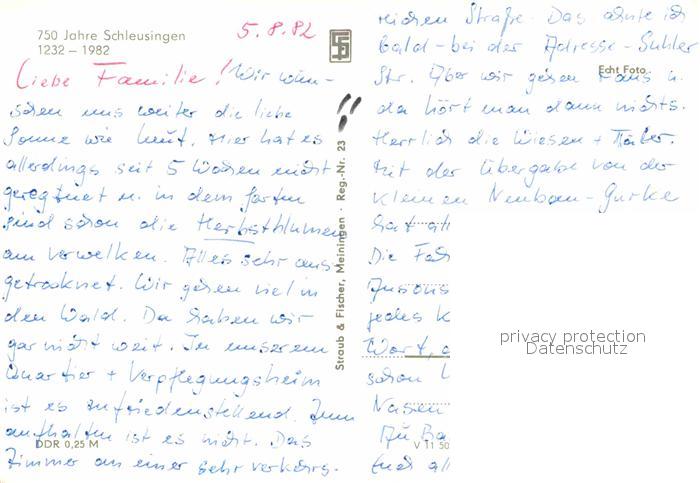 750 Jahre Schleusingen
1232 – 1982
5.8.82
Liebe Familie! Wir wün-
schen uns weiter die liebe
Sonne wie heut. Hier hat es
allerdings seit 5 Wochen nicht
geregnet u. in dem Garten
sind schon die Herbstblumen
am verwelken. Alles sehr aus-
getrocknet. Wir gehen viel in
den Wald. Da haben wir
gar nicht weit. In unserem
Quartier + Verpflegungsheim
ist es zufriedenstellend. Zum
aufhalten ist es nicht. Das
Zimmer an einer sehr verkehrs-
DDR 0,25 M
Straub & Fischer, Meiningen · Reg.-Nr. 23
!!
reichen Straße. Das ahnte ich
bald – bei der Adresse – Suhler
Str. Aber wir gehen raus u.
da hört man dann nichts.
Echt Foto
Herrlich die Wiesen + Täler.
Mit der Übergabe von der
kleinen Neubau-Gurke
hat
Die
jedes K
Wort,
schon
Nasen
Zu Ba
V 11 50
privacy protection
Datenschutz